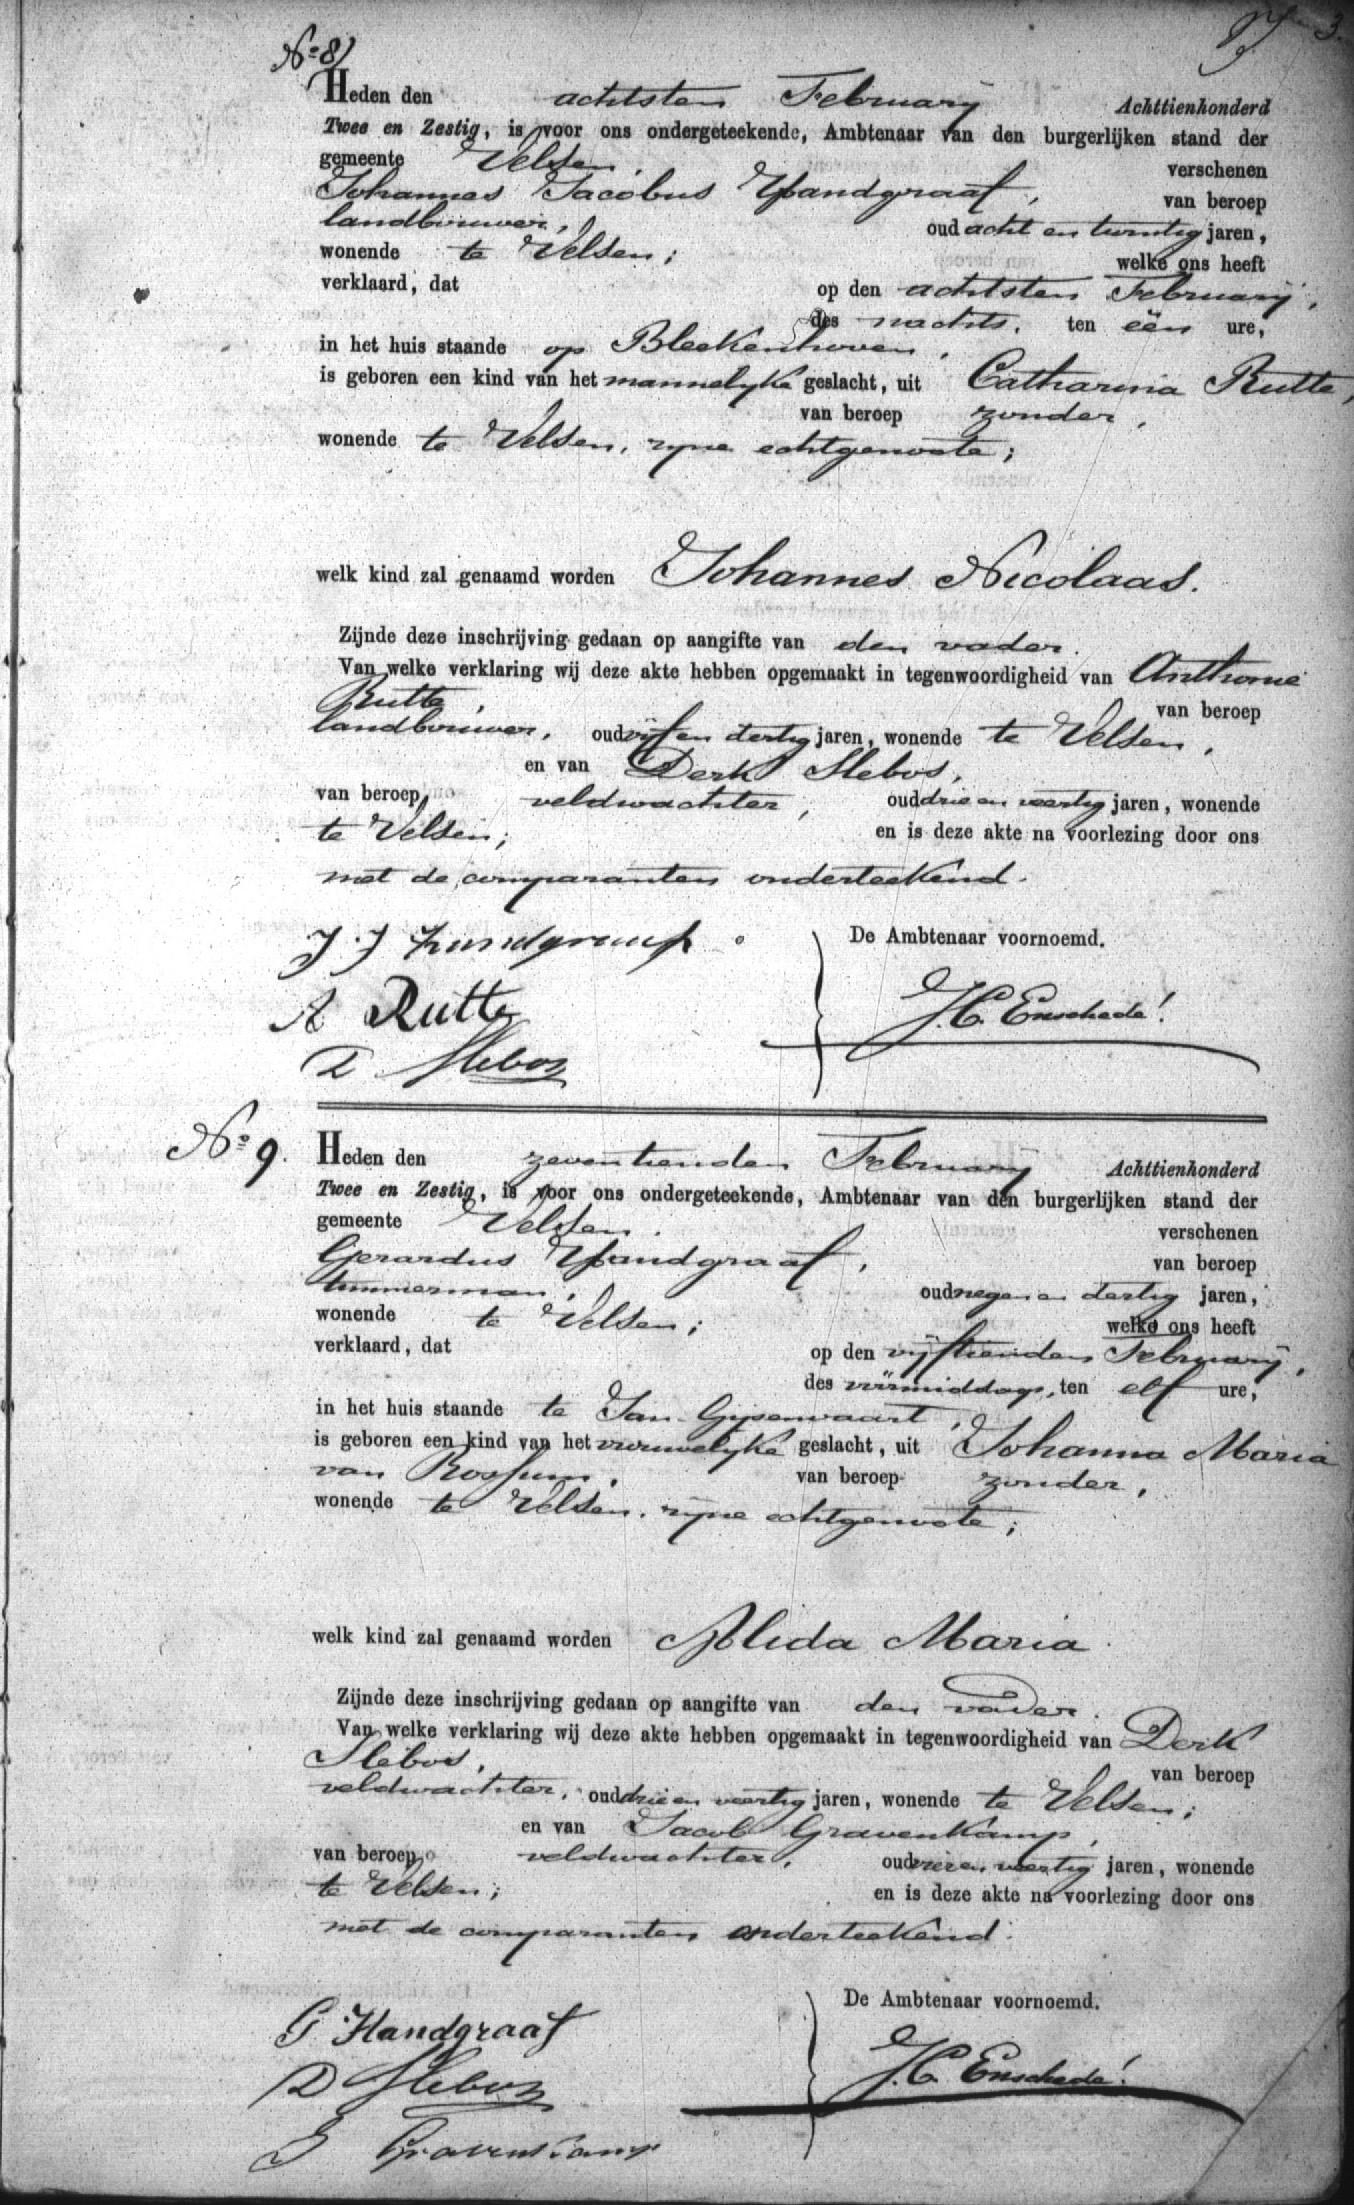 3.
No 8
Heden den achtsten February Achttienhonderd
Twee en Zestig, is voor ons ondergeteekende, Ambtenaar van den burgerlijken stand der
gemeente Velsen verschenen
Johannes Jacobus Handgraaf, van beroep
landbouwer, oud acht en twintig jaren,
wonende te Velsen; welke ons heeft
verklaard, dat op den achtsten February,
des nachts, ten één ure,
in het huis staande op Bleekenhoven,
is geboren een kind van het mannelyke geslacht, uit Catharina Rutte,
van beroep zonder,
wonende te Velsen, zyne echtgenoote;
welk kind zal genaamd worden Johannes Nicolaas.
Zijnde deze inschrijving gedaan op aangifte van den vader.
Van welke verklaring wij deze akte hebben opgemaakt in tegenwoordigheid van Anthonie
Rutte, van beroep
landbouwer, oud vijf en dertig jaren, wonende te Velsen,
en van Derk Slebos,
van beroep veldwachter, oud drie en veertig jaren, wonende
te Velsen; en is deze akte na voorlezing door ons
met de comparanten onderteekend.
De Ambtenaar voornoemd.
J. J Handgraaf
A Rutte J.C. Enschedé!
D Slebos
No 9. Heden den zeventienden February Achttienhonderd
Twee en Zestig, is voor ons ondergeteekende, Ambtenaar van den burgerlijken stand der
gemeente Velsen verschenen
Gerardus Handgraaf, van beroep
timmerman, oud negen en dertig jaren,
wonende te Velsen; welke ons heeft
verklaard, dat op den vijftienden February,
des vóórmiddags, ten elf ure,
in het huis staande te Jan Gysenvaart,
is geboren een kind van het vrouwelyke geslacht, uit Johanna Maria
van Rossum, van beroep zonder,
wonende te Velsen, zyne echtgenoote;
welk kind zal genaamd worden Alida Maria
Zijnde deze inschrijving gedaan op aangifte van den vader.
Van welke verklaring wij deze akte hebben opgemaakt in tegenwoordigheid van Derk
Slebos, van beroep
veldwachter, oud drie en veertig jaren, wonende te Velsen;
en van Jacob Gravenkamp,
van beroep veldwachter, oud vier en veertig jaren, wonende
te Velsen; en is deze akte na voorlezing door ons
met de comparanten onderteekend.
De Ambtenaar voornoemd.
G Handgraaf
D Slebos J.C. Enschedé!
J Gravenkamp